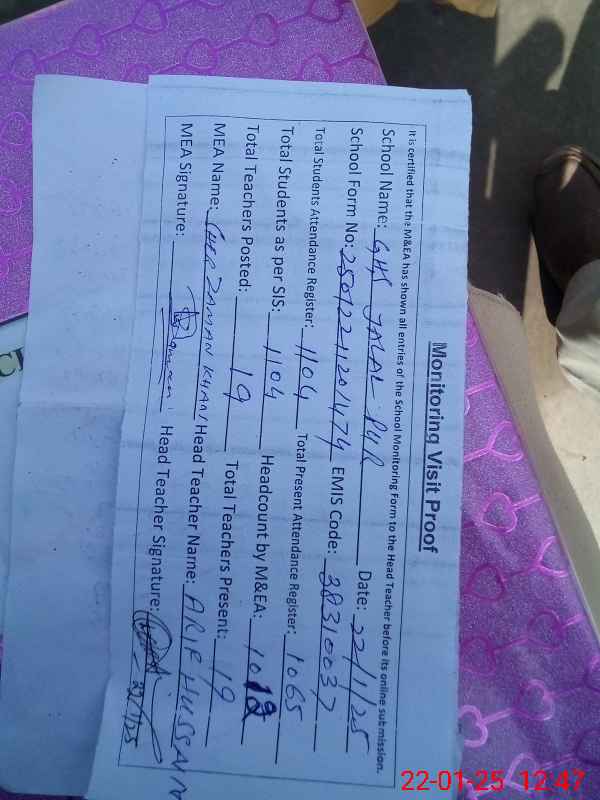 Monitoring Visit Proof
It is certified that the M&EA has shown all entries of the School Monitoring Form to the Head Teacher before its online submission.
School Name: GHS JALAL PUR Date: 22/1/25
School Form No: 25012211201474 EMIS Code: 38310037
Total Students Attendance Register: 1104 Total Present Attendance Register: 1065
Total Students as per SIS: 1104 Headcount by M&EA: 1012
Total Teachers Posted: 19 Total Teachers Present: 19
MEA Name: SHER ZAMAN KHAN Head Teacher Name: ARIF HUSSAIN
MEA Signature: Head Teacher Signature: 22/1/25
22-01-25 12:47